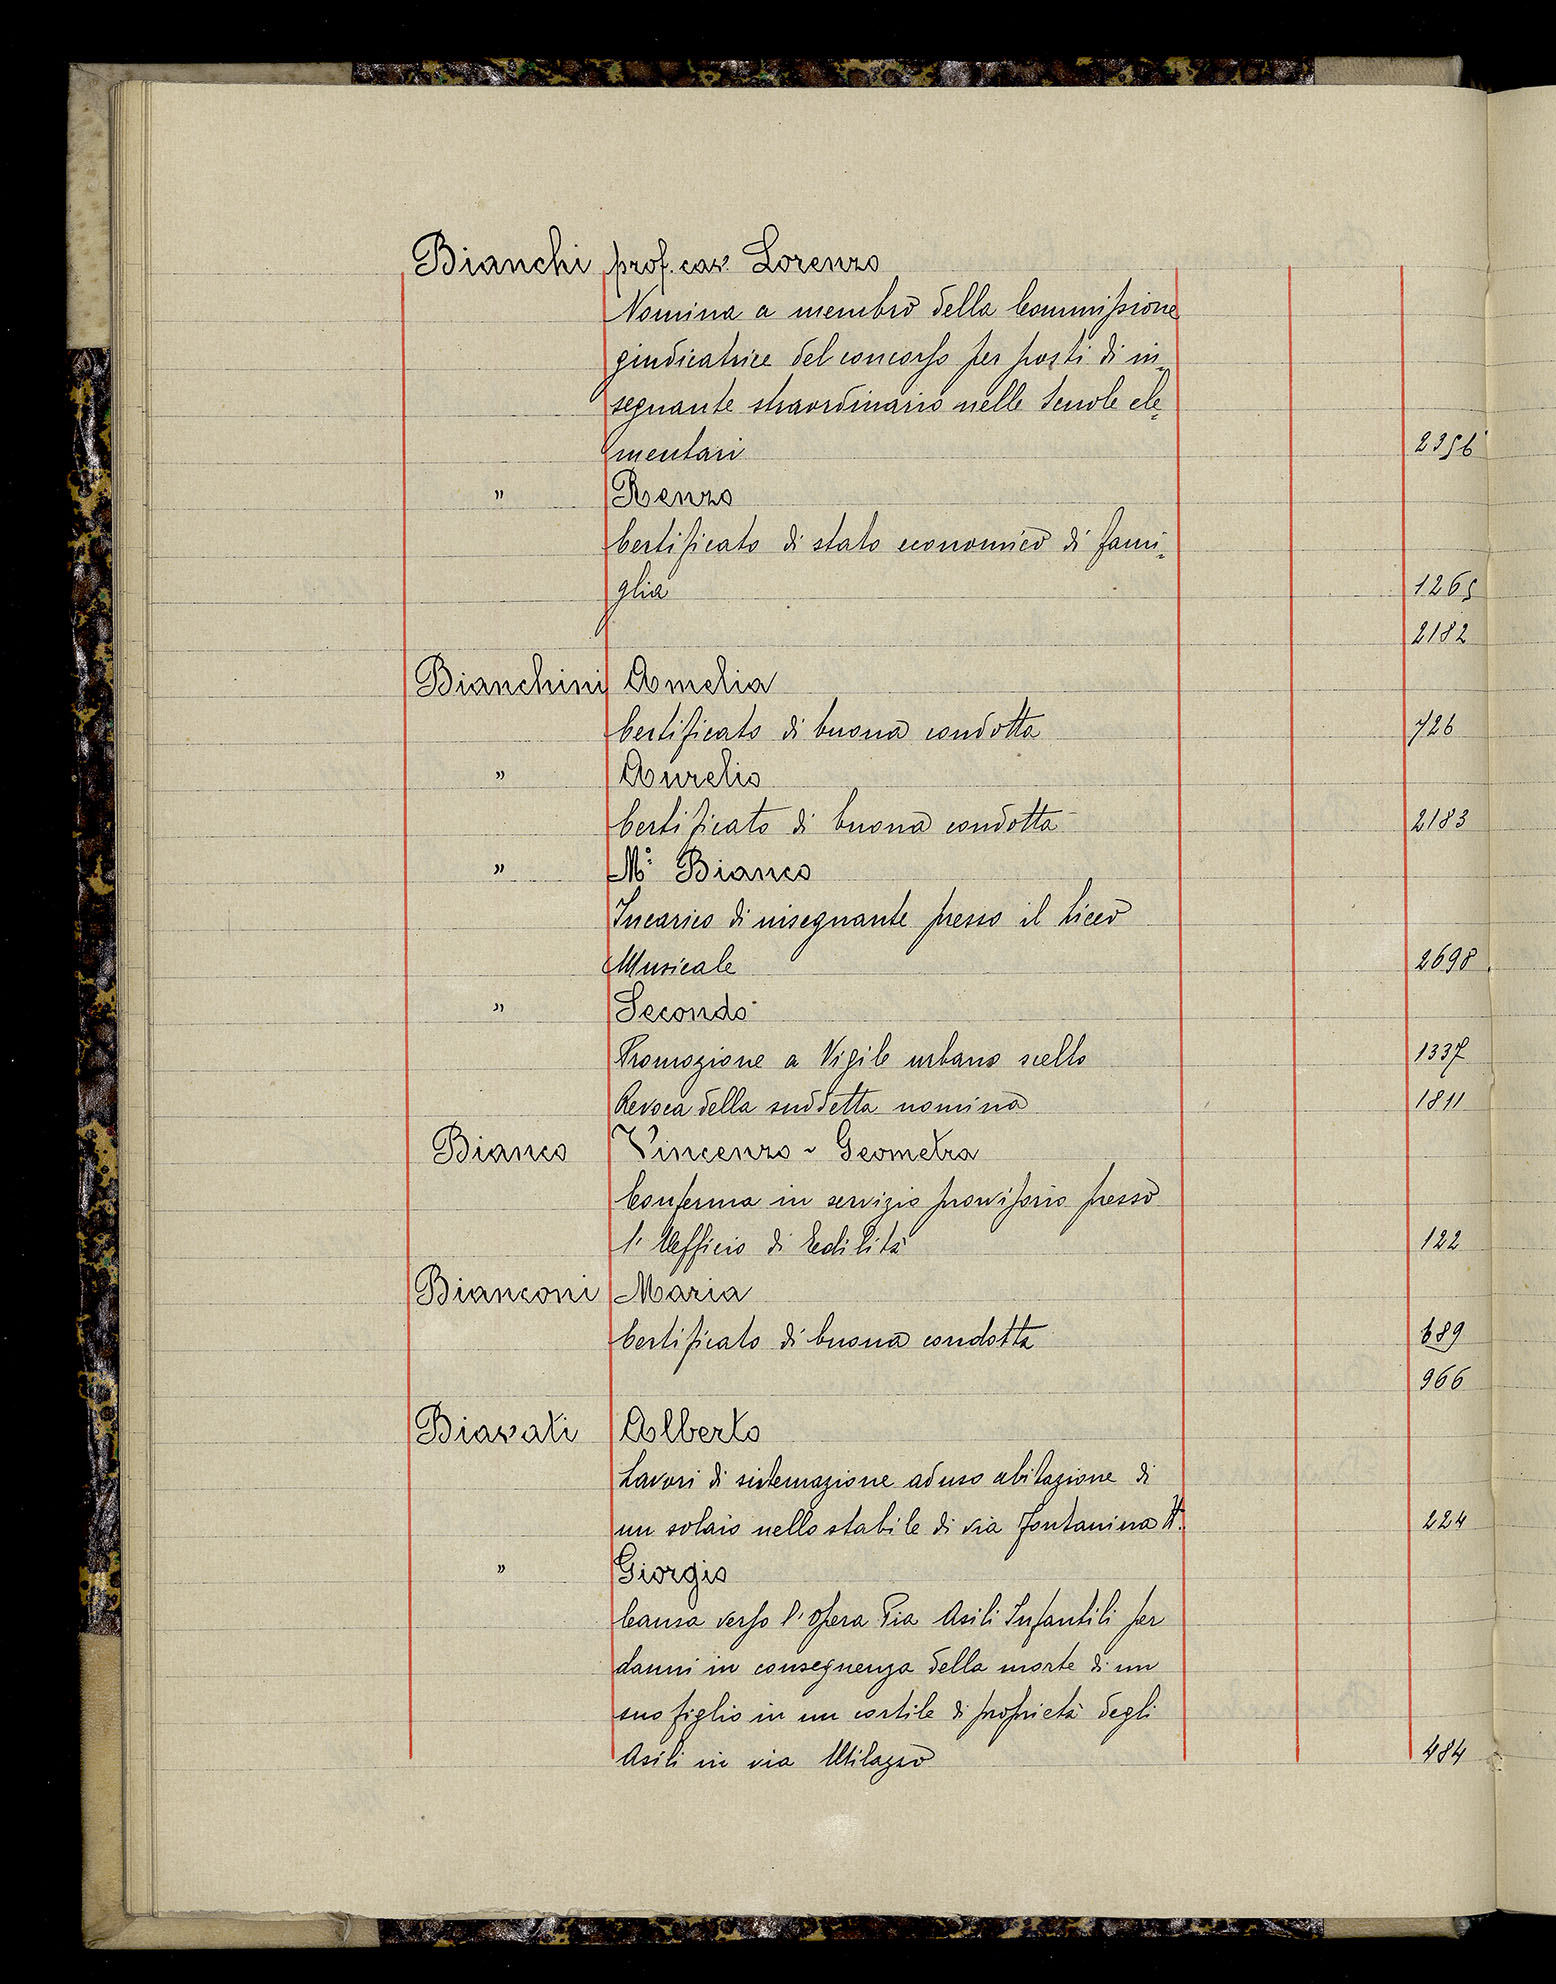 Bianchi prof. cav. Lorenzo
Nomina a membro della Commissione
giudicatrice del concorso per posti di in=
segnante straordinario nelle Scuole ele=
mentari 2356
" Renzo
Certificato di stato economico di fami=
glia 1265
2182
Bianchini Amelia
Certificato di buona condotta 726
" Aurelio
Certificato di buona condotta 2183
" M° Bianco
Incarico di insegnante presso il Liceo
Musicale 2698
" Secondo
Promozione a Vigile urbano scelto 1337
Revoca della suddetta nomina 1811
Bianco Vincenzo - Geometra
Conferma in servizio provvisorio presso
l'Ufficio di Edilità 122
Bianconi Maria
Certificato di buona condotta 689
966
Biavati Alberto
Lavori di sistemazione ad uso abitazione di
un solaio nello stabile di via Fontanina 224
" Giorgio
Causa verso l'Opera Pia Asili Infantili per
danni in conseguenza della morte di un
suo figlio in un cortile di proprietà degli
Asili in via Milazzo 484